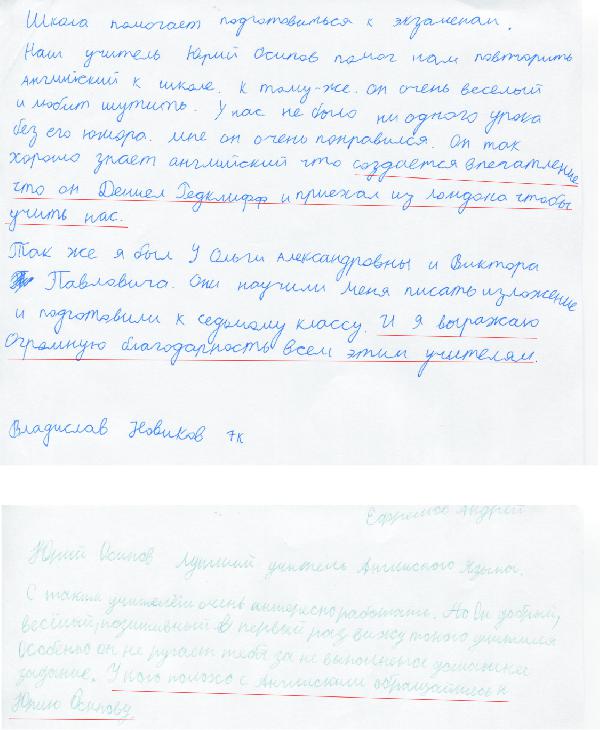 Школа помогает подготовиться к экзаменам.
Наш учитель Юрий Осипов помог нам повторить
Английский к школе. К тому-же он очень веселый
и любит шутить. У нас не было ни одного урока
без его юмора. мне он очень понравился. Он так
хорошо знает английский что создается впечатление
что он Дениел Редклифф и приехал из Лондона чтобы
учить нас.
Так же я был у Ольги Александровны и Виктора
Павловича. Они научили меня писать изложение
и подготовили к седьмому классу. И я выражаю
Огромную благодарность всем этим учителям.
Владислав Новиков 7к
Ефремов Андрей
Юрий Осипов лучший учитель Английского Языка.
С таким учителем очень интересно работать. Но Он добрый,
весёлый, позитивный В первый раз вижу такого учителя
Особенно он не ругает тебя за не выполненое домашнее
задание. У кого плохо с Английским обращайтесь к
Юрию Осипову.